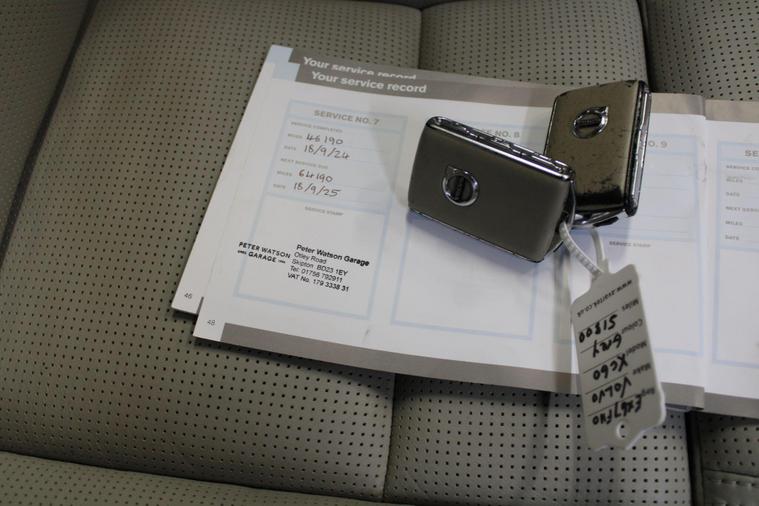 Your service record
Your service record
SERVICE NO. 7
SERVICE COMPLETED
MILES 46190
DATE 18/9/24
NEXT SERVICE DUE
MILES 64190
DATE 18/9/25
SERVICE STAMP
PETER WATSON
GARAGE
Peter Watson Garage
Otley Road
Skipton. BD23 1EY
Tel: 01756 792911
VAT No. 179 3338 31
46
48
NO. 8
NO. 9
SERVICE STAMP
SE
MILES
DATE
NEXT SERVICE
MILES
DATE
www.evartek.co.uk
Miles 51800
Colour GREY
Model XC60
Make VOLVO
Reg